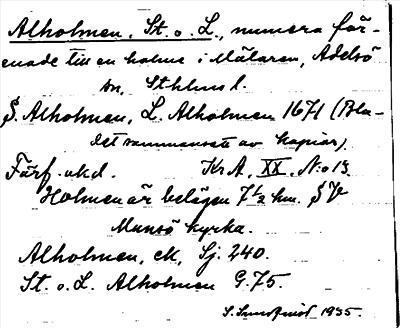 Alholmen, St. o. L., numera för-
enade till en holme i Mälaren, Adelsö
sn, Sthlms l.
S. Alholmen, L. Alholmen 1671 (Bla-
det sammansatt av kopior)
Färf. akd. Kr A, XX. N:o 13
Holmen är belägen 7 1/2 km. SV
Munsö kyrka.
Alholmen, ek, Sj. 240.
St. o. L. Alholmen G. 75.
S. Sundqvist 1935.